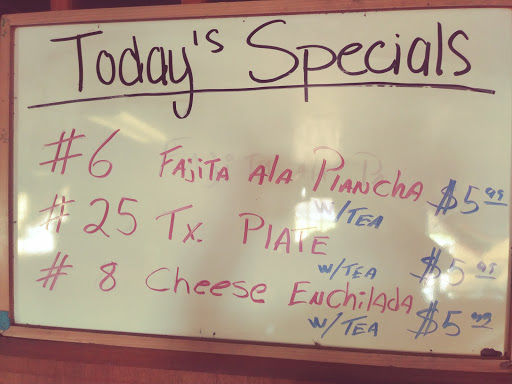 Today's Specials
#6 Fajita ala Plancha $5.99
w/Tea
#25 Tx. Plate
w/Tea $5.99
#8 Cheese Enchilada
w/Tea $5.99